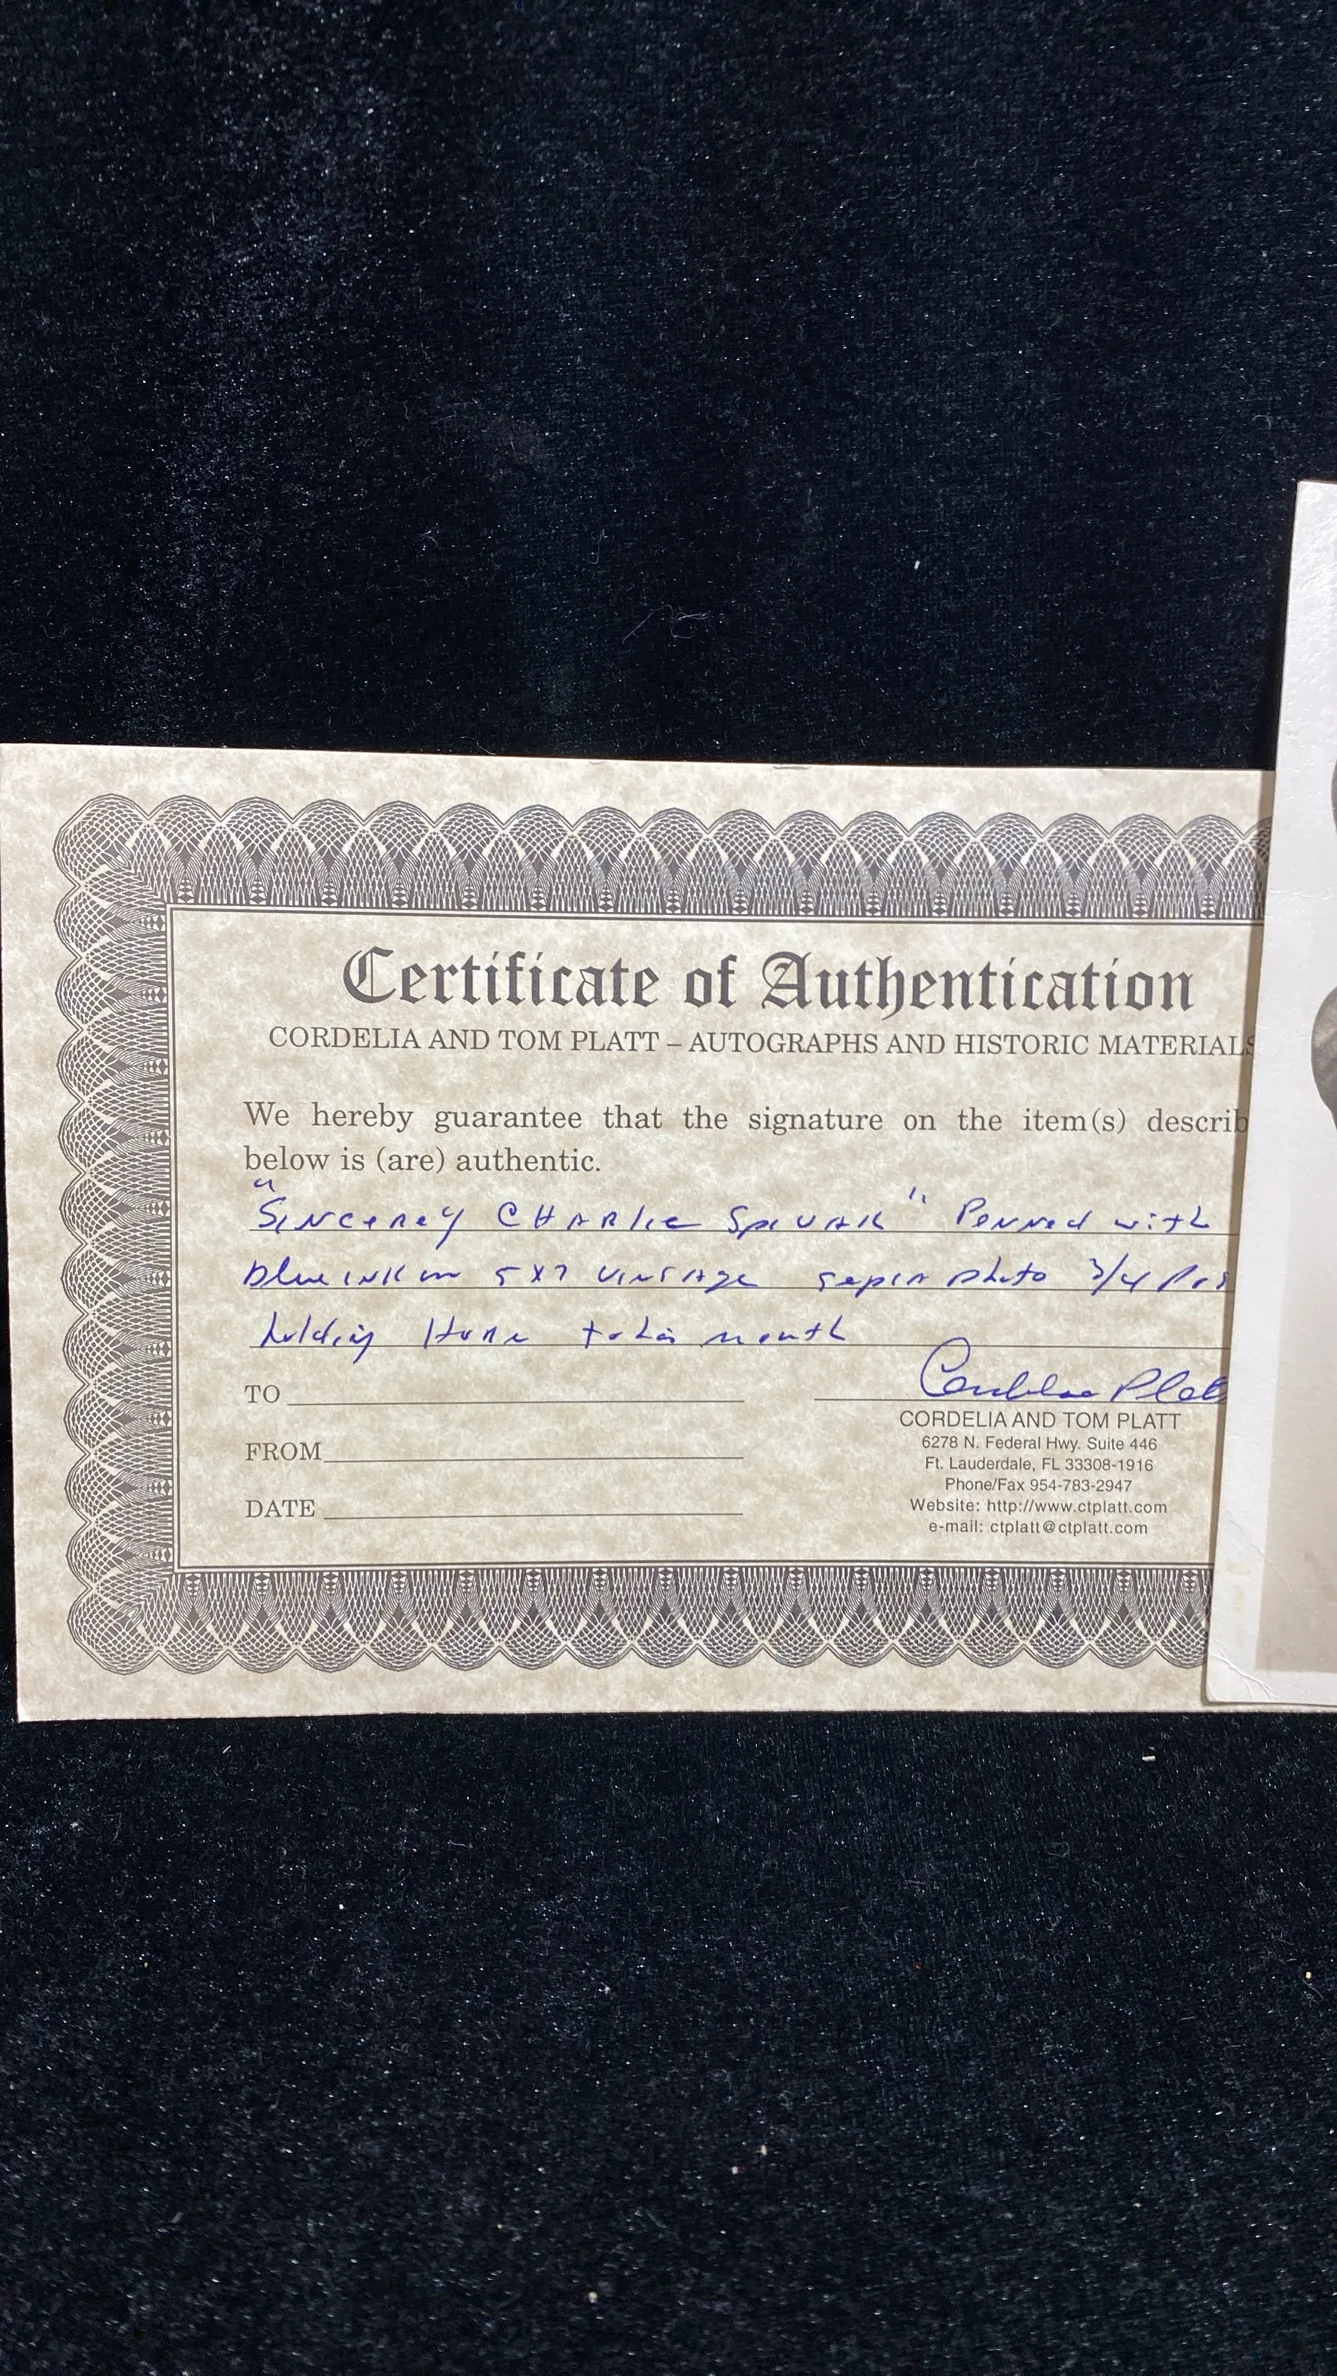 Certificate of Authentication
CORDELIA AND TOM PLATT – AUTOGRAPHS AND HISTORIC MATERIALS
We hereby guarantee that the signature on the item(s) describ
below is (are) authentic.
"Sincerey CHARlie SpivAK" Penned with
blue iNK on 5x7 vintage sepia photo 3/4
holding Horn to his mouth
Cordelia Platt
TO
FROM
DATE
CORDELIA AND TOM PLATT
6278 N. Federal Hwy. Suite 446
Ft. Lauderdale, FL 33308-1916
Phone/Fax 954-783-2947
Website: http://www.ctplatt.com
e-mail: ctplatt@ctplatt.com